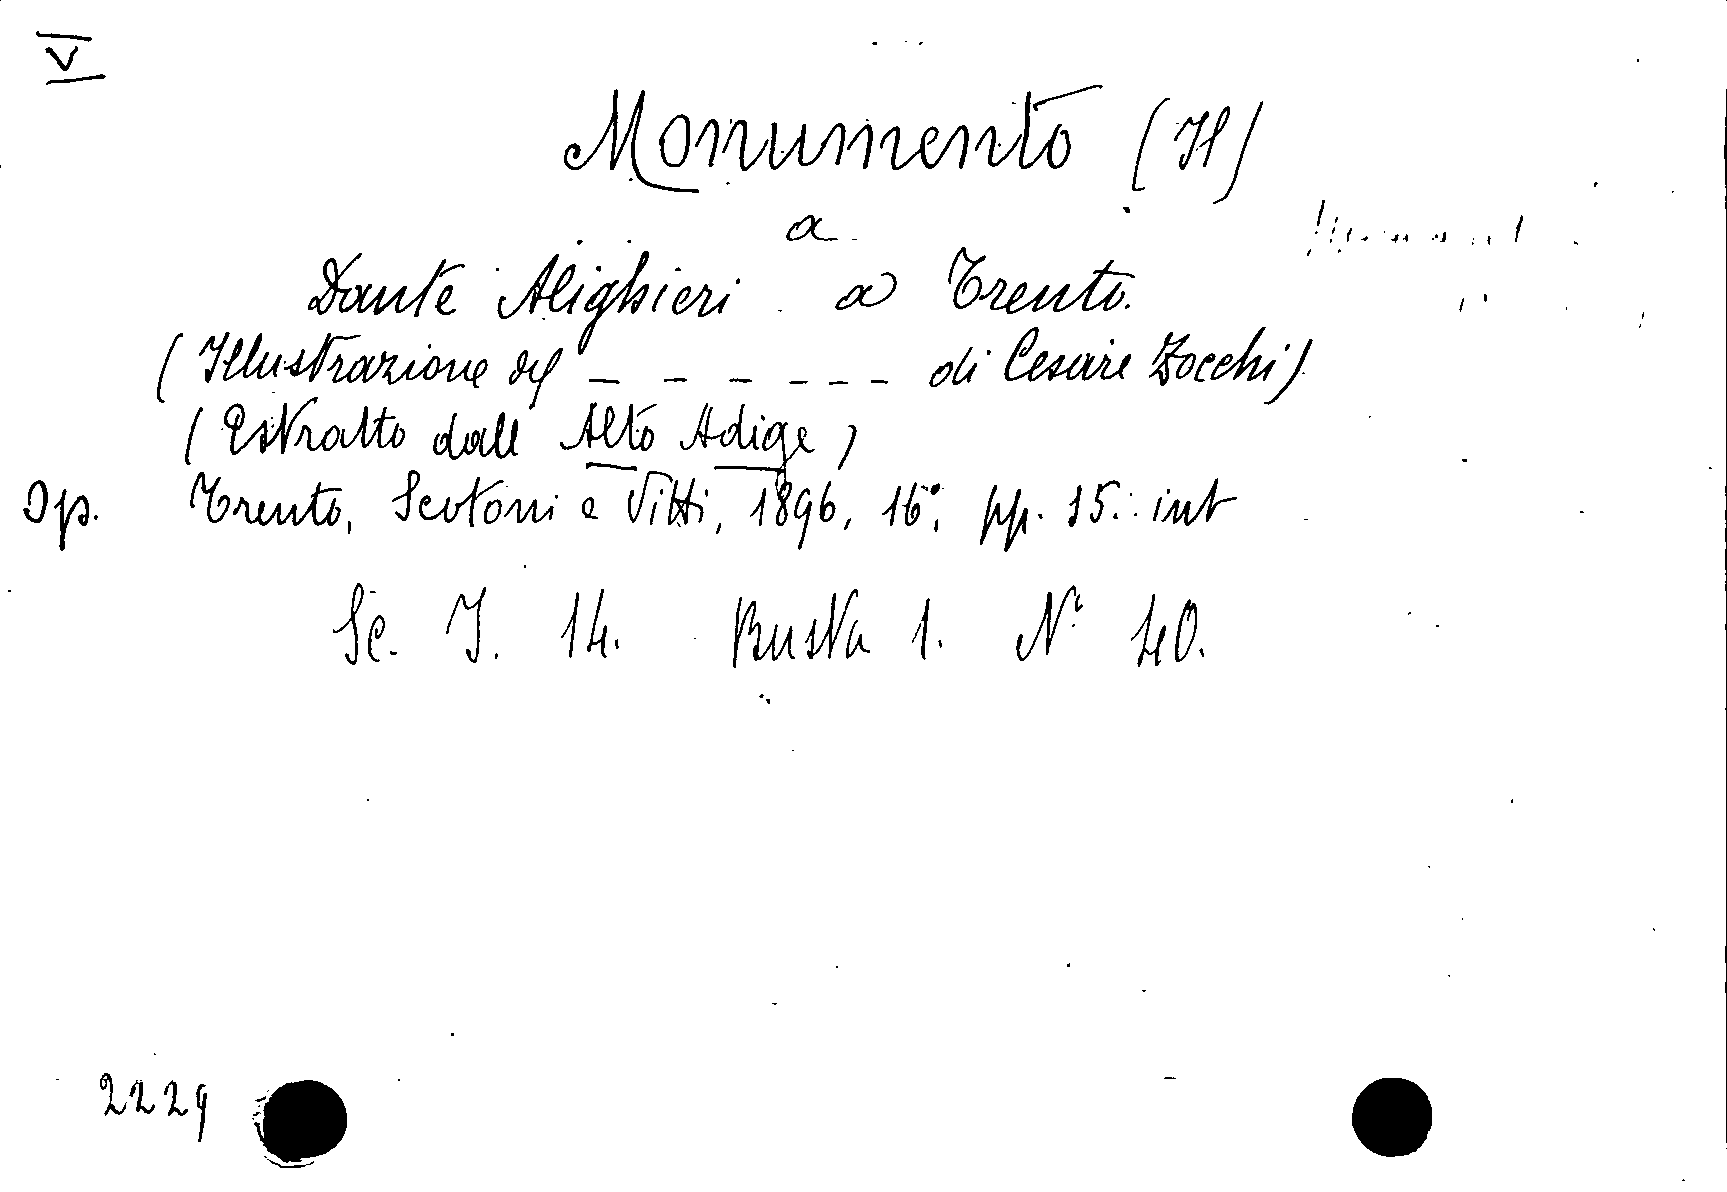 V
Monumento (Il)
a
Dante Alighieri a Trento.
(Illustrazione del _ _ _ _ _ _ di Cesare Zocchi)
(Estratto dall Alto Adige)
Op. Trento, Scotoni e Vitti, 1896, 16°, pp. 15. int
Sc. I. 14. Busta 1. N° 40.
2229